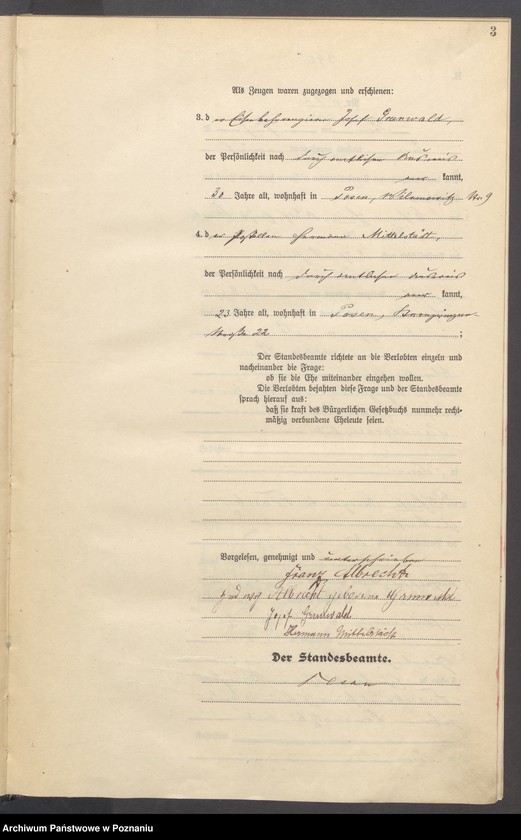 3
Als Zeugen waren zugezogen und erschienen:
3. d er Josef Grunwald,
der Persönlichkeit nach durch amtlichen Ausweis
kannt,
30 Jahre alt, wohnhaft in Posen, Nr. 9
4. d er Hermann Mittelstädt,
der Persönlichkeit nach durch amtlichen Ausweis
kannt,
23 Jahre alt, wohnhaft in Posen,
straße 22 ;
Der Standesbeamte richtete an die Verlobten einzeln und
nacheinander die Frage:
ob sie die Ehe miteinander eingehen wollen.
Die Verlobten bejahten diese Frage und der Standesbeamte
sprach hierauf aus:
daß sie kraft des Bürgerlichen Gesetzbuchs nunmehr recht-
mäßig verbundene Eheleute seien.
Vorgelesen, genehmigt und unterschrieben
Franz Albrecht
Albrecht geborene
Josef Grunwald
Hermann Mittelstädt
Der Standesbeamte.
Archiwum Państwowe w Poznaniu